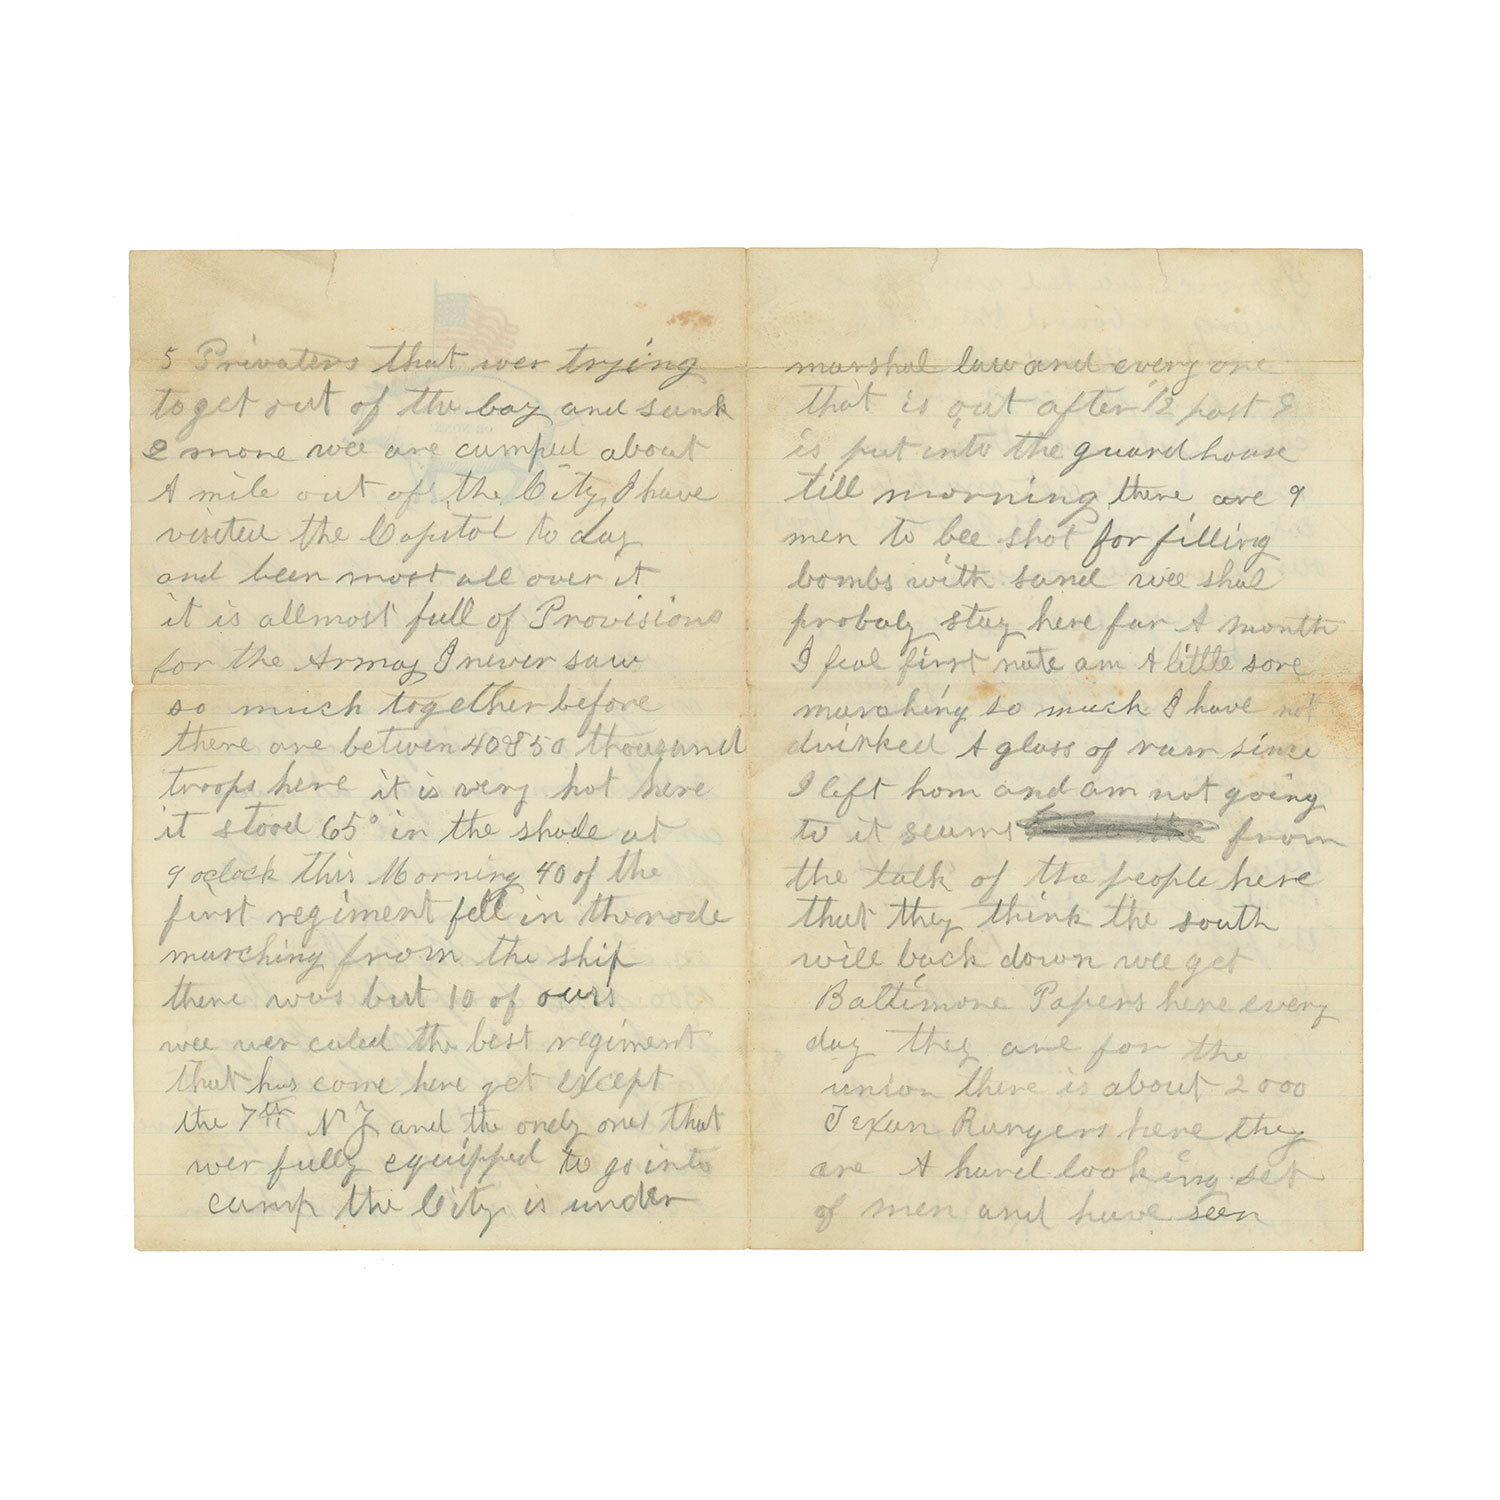 5 Privaters that wer trying
to get out of the bay and sunk
2 more wee are camped about
A mile out of the City I have
visited the Capitol to day
and been most all over it
it is allmost full of Provisions
for the Armay I never saw
so much together before
there are betwen 40 & 50 thousand
troops here it is very hot here
it stood 65° in the shade at
9 oclock this Morning 40 of the
first regiment fell in the rode
marching from the ship
there was but 10 of ours
wee wer caled the best regiment
that has come here yet except
the 7th N Y and the ondly ones that
wer fully equipped to go into
camp the City is under
marshal law and every one
that is out after 1/2 past 8
is put into the guard house
till morning there are 9
men to bee shot for filling
bombs with sand wee shal
probaly stay here for A month
I feal first rate am A little sore
marching so much I have not
drinked A glass of rum since
I left hom and am not going
to it seams from
the talk of the people here
that they think the south
will back down wee get
Baltimore Papers here every
day they are for the
union there is about 2000
Texan Rangers here they
are A hard looking set
of men and have seen